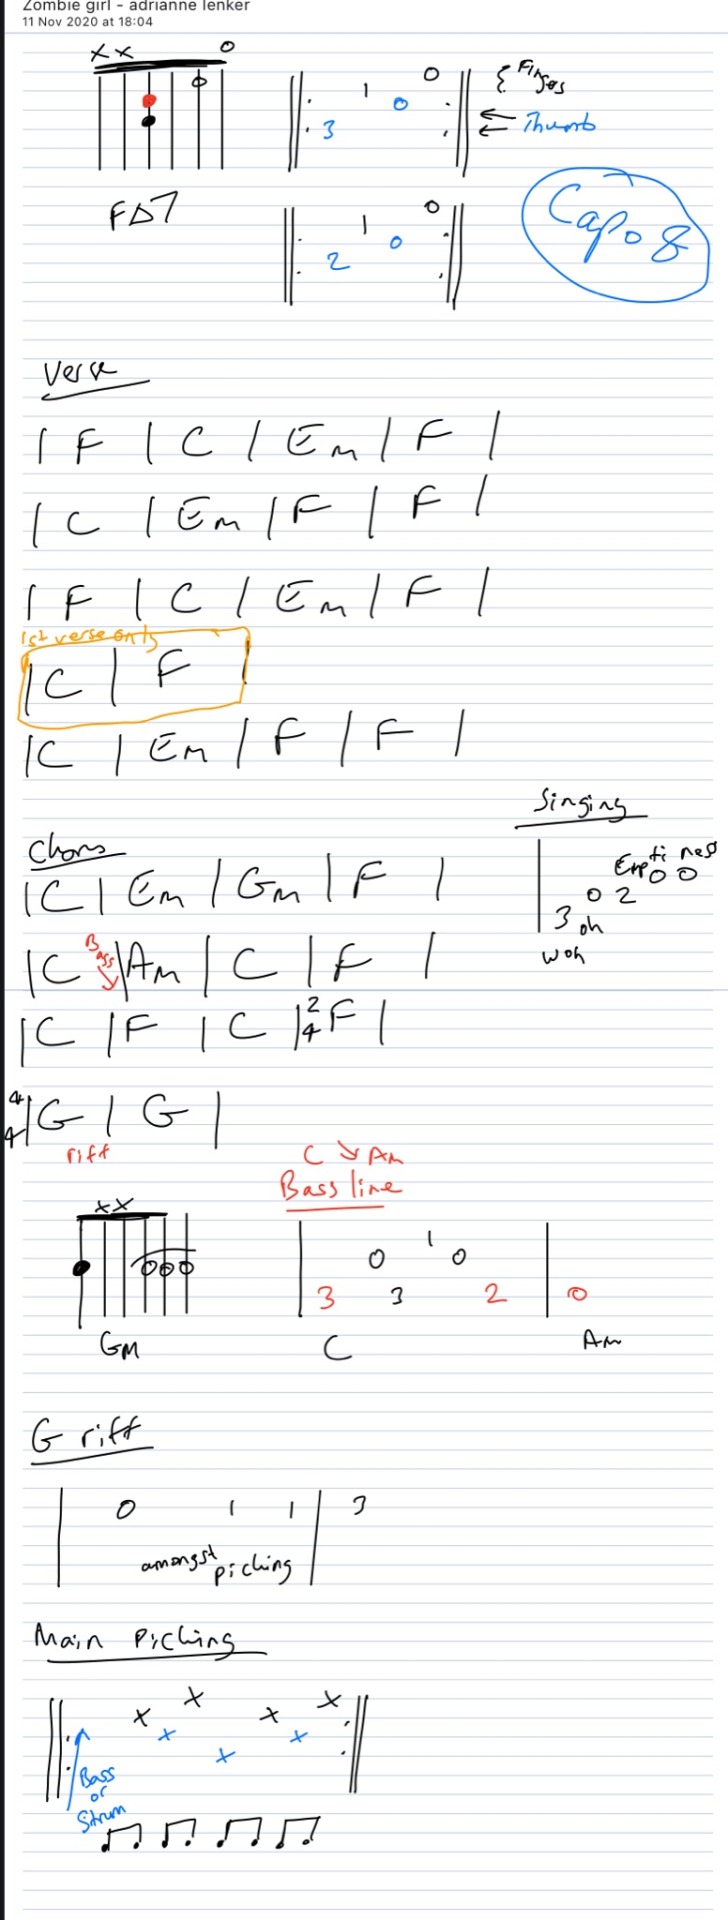 Zombie girl - adrianne lenker
11 Nov 2020 at 18:04
x x o
1 0 } Fingers
3 0 ← Thumb
F△7
1 0
2 0
Capo 8
Verse
| F | C | Em | F |
| C | Em | F | F |
| F | C | Em | F |
1st verse only
| C | F |
| C | Em | F | F |
Singing
Emptiness
0 0
0 2
3 oh
woh
Chorus
| C | Em | Gm | F |
| C Bass ↘ | Am | C | F |
| C | F | C | 2/4 F |
4/4 | G | G |
riff
C ↘ Am
Bass line
x x
1
0 0
3 3 2 | 0
Gm C Am
G riff
| 0 1 1 | 3
amongst picking
Main Picking
x x x x
x x x
Bass
or
Strum
♫ ♫ ♫ ♫